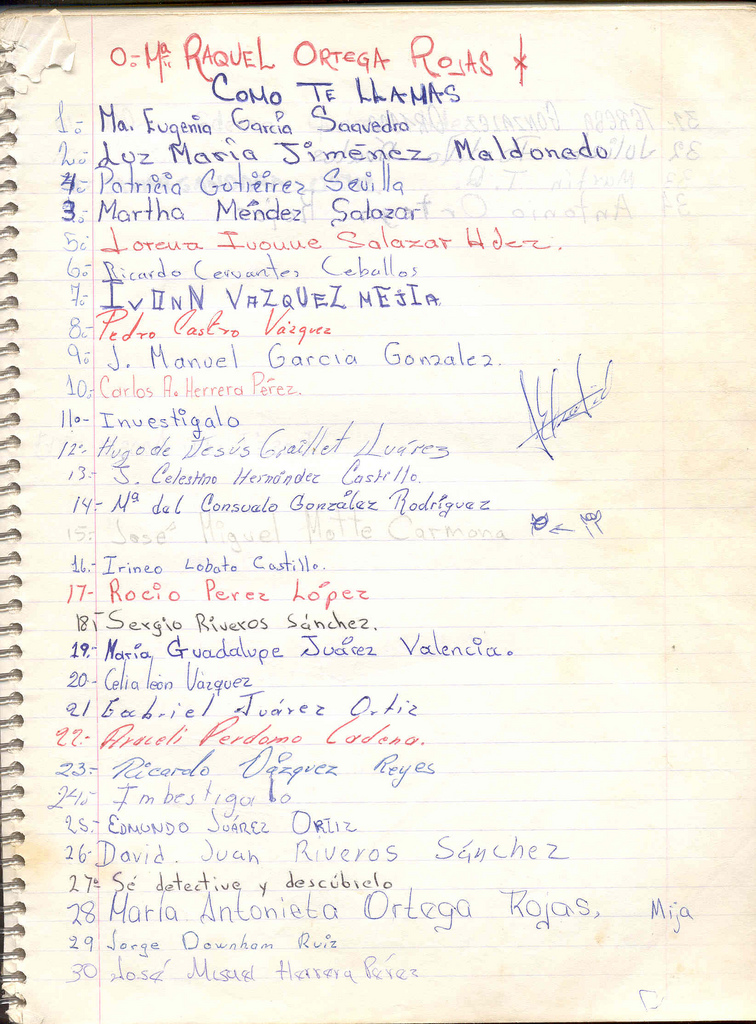 0.- Mª RAQUEL ORTEGA ROJAS *
COMO TE LLAMAS
1.- Ma. Eugenia García Saavedra
2.- Luz María Jiménez Maldonado
4.- Patricia Gutiérrez Sevilla
3.- Martha Méndez Salazar
5.- Lorena Ivonne Salazar Hdez.
6.- Ricardo Cervantes Ceballos
7.- IVONN VAZQUEZ MEJIA
8.- Pedro Castro Vázquez
9.- J. Manuel Garcia Gonzalez.
10.- Carlos A. Herrera Pérez.
11.- Investigalo
12.- Hugo de Jesús Graillet Juárez
13.- J. Celestino Hernández Castillo.
14.- Mª del Consuelo González Rodríguez
15.- José Miguel Motte Carmona
16.- Irineo Lobato Castillo.
17- Rocio Perez López
18.- Sergio Riveros Sánchez.
19.- María Guadalupe Juárez Valencia.
20.- Celia león Vázquez
21 Gabriel Juárez Ortiz
22.- Araceli Perdomo Cadena.
23.- Ricardo Vázquez Reyes
24.- Imbestigalo
25.- EDMUNDO JUÁREZ ORTIZ
26- David. Juan Riveros Sánchez
27.- Sé detective y descúbrelo
28 María Antonieta Ortega Rojas, Mija
29 Jorge Downham Ruiz
30 José Misael Herrera Pérez